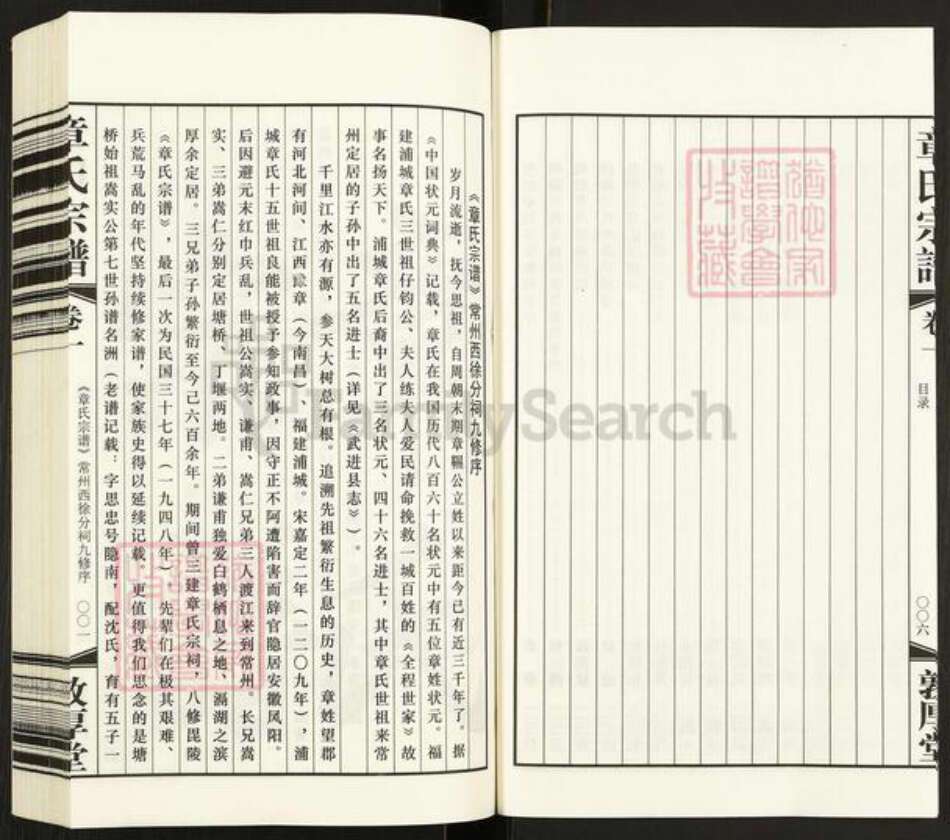 章氏宗谱
卷一
目录
〇〇六
敦厚堂
《章氏宗谱》常州西徐分祠九修序
岁月流逝，抚今思祖，自周朝末期章韫公立姓以来距今已有近三千年了。据
《中国状元词典》记载，章氏在我国历代八百六十名状元中有五位章姓状元。福
建浦城章氏三世祖仔钧公、夫人练夫人爱民请命挽救一城百姓的《全程世家》故
事名扬天下。浦城章氏后裔中出了三名状元、四十六名进士，其中章氏世祖来常
州定居的子孙中出了五名进士（详见《武进县志》）。
千里江水亦有源，参天大树总有根。追溯先祖繁衍生息的历史，章姓望郡
有河北河间、江西豫章（今南昌）、福建浦城。宋嘉定二年（一二〇九年），浦
城章氏十五世祖良能被授予参知政事，因守正不阿遭陷害而辞官隐居安徽凤阳。
后因避元末红巾兵乱，世祖公嵩实、谦甫、嵩仁兄弟三人渡江来到常州。长兄嵩
实、三弟嵩仁分别定居塘桥、丁堰两地。二弟谦甫独爱白鹤栖息之地、滆湖之滨
厚余定居。三兄弟子孙繁衍至今已六百余年。期间曾三建章氏宗祠，八修毘陵
《章氏宗谱》，最后一次为民国三十七年（一九四八年），先辈们在极其艰难、
兵荒马乱的年代坚持续修家谱，使家族史得以延续记载，更值得我们思念的是塘
桥始祖嵩实公第七世孙谱名洲（老谱记载：字思忠号隐南，配沈氏，育有五子一
章氏宗谱
卷一
《章氏宗谱》常州西徐分祠九修序
〇〇一
敦厚堂
FamilySearch